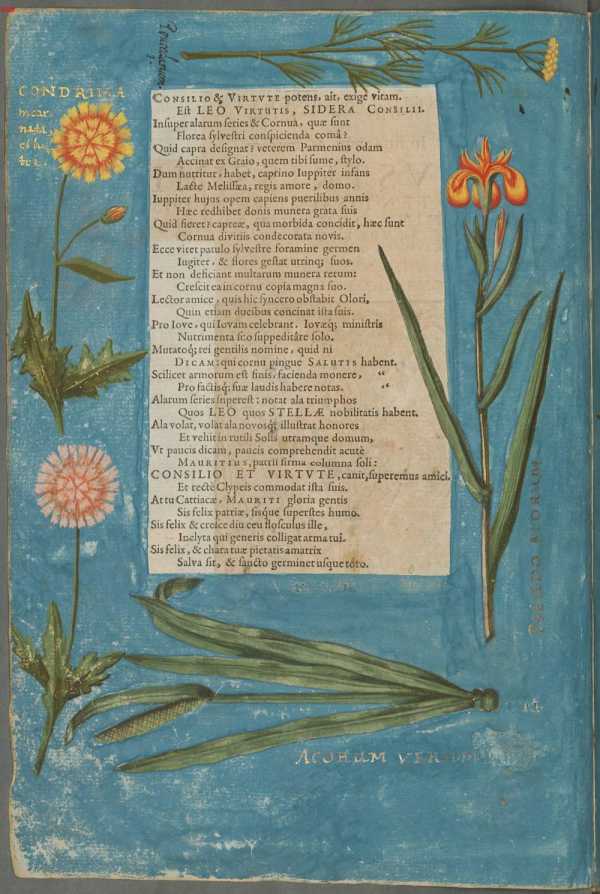 CONDRILLA
incar-
nata,
CONSILIO & VIRTVTE potens, ait, exige vitam.
Est LEO VIRTVTIS, SIDERA CONSILII.
Insuper alarum series & Cornua, quæ sunt
Florea sylvestri conspicienda comâ?
Quid capra designat? veterem Parmenius odam
Accinat ex Graio, quem tibi sume, stylo.
Dum nutritur, habet, caprino Iuppiter infans
Lacte Melissæa, regis amore, domo.
Iuppiter hujus opem capiens puerilibus annis
Hæc redhibet donis munera grata suis
Quid fieret? capreæ, qua morbida concidit, hæc sunt
Cornua divitiis condecorata novis.
Ecce vitet patulo sylvestre foramine germen
Iugiter, & flores gestat utrinq; suos.
Et non deficiant multarum munera rerum:
Crescit ea in cornu copia magna suo.
Lector amice, quis hic syncero obstabit Olori,
Quin etiam ducibus concinat ista suis.
Pro Iove, qui Iovam celebrant, Iovæq; ministris
Nutrimenta suo suppeditâre solo.
Mutatoq; rei gentilis nomine, quid ni
DICAM: qui cornu pingue SALUTIS habent.
Scilicet armorum est finis, facienda monere, “
Pro factisq; suæ laudis habere notas. “
Alarum series superest: notat ala triumphos
Quos LEO quos STELLÆ nobilitatis habent.
Ala volat, volat ala novosq; illustrat honores
Et vehit in rutili Solis utramque domum,
Vt paucis dicam, paucis comprehendit acutè
MAURITIUS, patrii firma columna soli:
CONSILIO ET VIRTVTE, canit, superemus amici.
Et rectè Clypeis commodat ista suis.
At tu Cattiacæ, MAURITI gloria gentis
Sis felix patriæ, sisque superstes humo.
Sis felix & cresce diu ceu flosculus ille,
Inclyta qui generis colligat arma tui.
Sis felix, & chara tuæ pietatis amatrix
Salva sit, & sancto germinet usque toro.
PSEUDO ACORUM
ACORUM VERUM